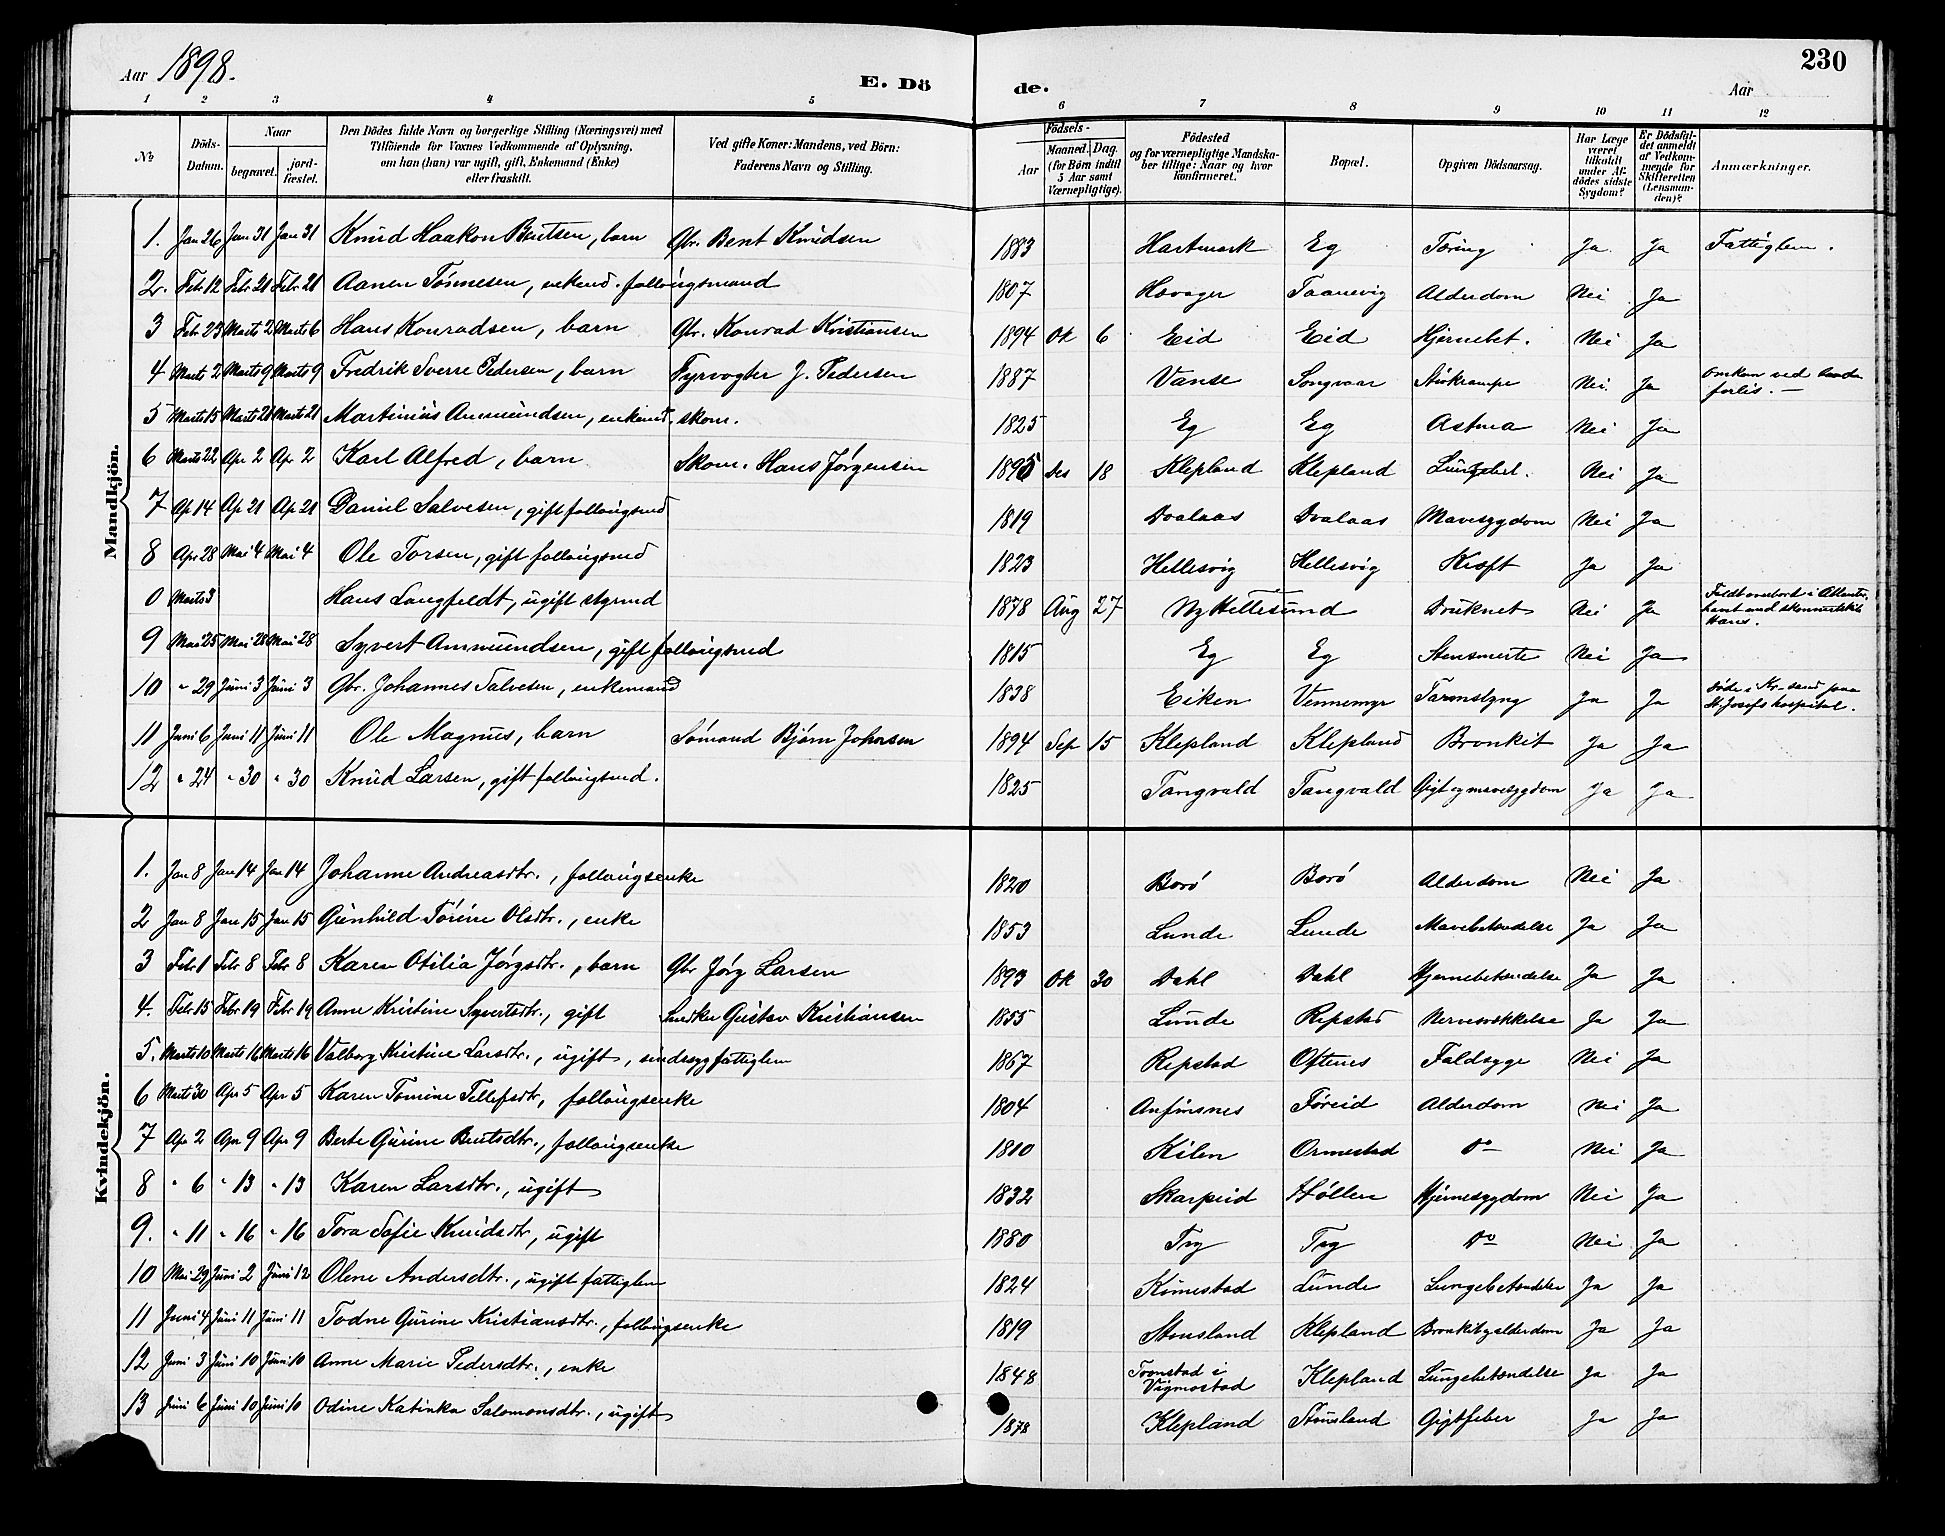 Aar 1898.
E. Dö
de.
Aar
230
1 2 3 4 5 6 7 8 9 10 11 12
№
Döds-Datum.
Naar
begravet.
jord-fæstet.
Den Dödes fulde Navn og borgerlige Stilling (Næringsvei) med
Tilföiende for Voxnes Vedkommende af Oplysning,
om han (hun) var ugift, gift, Enkemand (Enke)
eller fraskilt.
Ved gifte Koner: Mandens, ved Börn:
Faderens Navn og Stilling.
Födsels-
Aar
Maaned. Dag.
(for Börn indtil
5 Aar samt
Værnepligtige).
Födested
og for værnepligtige Mandska-
ber tillige: Naar og hvor
konfirmeret.
Bopæl.
Opgiven Dödsaarsag.
Har Læge
været
tilkaldt
under Af-
dödes sidste
Sygdom?
Er Dödsfal-
det anmeldt
af Vedkom-
mende for
Skifteretten
(Lensman-
den)?
Anmærkninger.
Mandkjön.
1. Jan 26 Jan 31 Jan 31 Knud Haakon Bentsen, barn Gbr. Bent Knudsen 1883 Hartmark Eg Tæring Ja Ja Fattiglem.
2. Feb 12 Febr 21 Febr 21 Aanen Tönnesen, enkemd. follaugsmand 1807 Haavager Taanevig Alderdom Nei Ja
3 Feb 23 Marts 2 Marts 6 Hans Konradsen, barn Gbr. Konrad Kristiansen 1894 Ok 6 Eid Eid Hjernebet. Nei Ja
4 Marts 2 Marts 9 Marts 9 Fredrik Sverre Pedersen, barn Fyrvogter J. Pedersen 1887 Vanse Songvaar Nei Ja Omkom ved
forlis. —
5 Marts 15 Marts 21 Marts 21 Martinius Aanmundsen, enkemd. skom. 1825 Eg Eg Astma Nei Ja
6 Marts 22 Apr 2 Apr 2 Karl Alfred, barn Skom. Hans Jørgensen 1895 Des 18 Klepland Klepland Lungebet. Nei Ja
7 Ap 14 Ap 21 Ap 21 Daniel Salvesen, gift follaugsmd 1819 Dvalaas Dvalaas Mavesygdom Nei Ja
8 Apr 28 Mai 4 Mai 4 Ole Torsen, gift follaugsmd 1823 Hellesvig Hellesvig Kræft Ja Ja
0 Marts 3 Hans Langfeldt, ugift styrmd 1878 Aug 27 Ny Hellesund Druknet Nei Ja Faldt overbord i Atlanter-
havet med skonnertskib
Hans.
9 Mai 25 Mai 28 Mai 28 Syvert Aanmundsen, gift follaugsmd 1815 Eg Eg Stensmerte Nei Ja
10 " 29 Juni 3 Juni 3 Gbr. Johannes Salvesen, enkemand 1838 Eiken Vennemyr Tarmslyng Ja Ja Døde i Kr-sand paa
St. Josefs hospital.
11 Juni 6 Juni 11 Juni 11 Ole Magnus, barn Sømand Bjørn Johnsen 1894 Sep 15 Klepland Klepland Bronkit Ja Ja
12 " 24 " 30 " 30 Knud Larsen, gift follaugsmd. 1825 Tangvald Tangvald Gigt og mavesygdom Ja Ja
Kvindekjön.
1. Jan 8 Jan 14 Jan 14 Johanne Andreasdtr., follaugsenke 1820 Borø Borø Alderdom Nei Ja
2 Jan 8 Jan 15 Jan 15 Gunhild Torine Olsdtr., enke 1853 Lunde Lunde Mavebetændelse Ja Ja
3 Febr 1 Febr 8 Febr 8 Karen Otilia Jørgsdtr., barn Gbr Jørg Larsen 1893 Ok 30 Dahl Dahl Hjernebetændelse Ja Ja
4. Febr 15 Febr 19 Febr 19 Anne Kristine Syvertsdtr., gift Snedker Gustav Kristiansen 1855 Lunde Repstad Nervesvækkelse Ja Ja
5. Marts 10 Marts 16 Marts 16 Valborg Kristine Larsdtr., ugift, sindssyg fattiglem 1867 Repstad Oftenes Faldsyge Nei Ja
6 Marts 30 Apr 5 Apr 5 Karen Tomine Tellefsdtr, follaugsenke 1804 Anfinsnes Føreid Alderdom Nei Ja
7 Ap 2 Apr 9 Apr 9 Berte Gurine Bentsdtr., follaugsenke 1810 Kilen Ormestad Do Nei Ja
8 " 6 " 13 " 13 Karen Larsdtr., ugift 1832 Skarpeid Høllen Hjernesygdom Nei Ja
9. " 11 " 16 " 16 Tora Sofie Knudsdtr, ugift 1880 Try Try Do Nei Ja
10 Mai 29 Juni 2 Juni 12 Olene Andersdtr., ugift fattiglem 1824 Kumestad Lunde Lungebetændelse Ja Ja
11 Juni 4 Juni 11 Juni 11 Todne Gurine Kristiansdtr., follaugsenke 1819 Stensland Klepland Bronkit og alderdom Ja Ja
12 Juni 3 Juni 10 Juni 10 Anne Marie Pedersdtr., enke 1848 Tronstad i
Vigmostad Klepland Lungebetændelse Ja Ja
13 Juni 6 Juni 10 Juni 10 Odine Katinka Salomonsdtr., ugift 1878 Klepland Stausland Gigtfeber Ja Ja